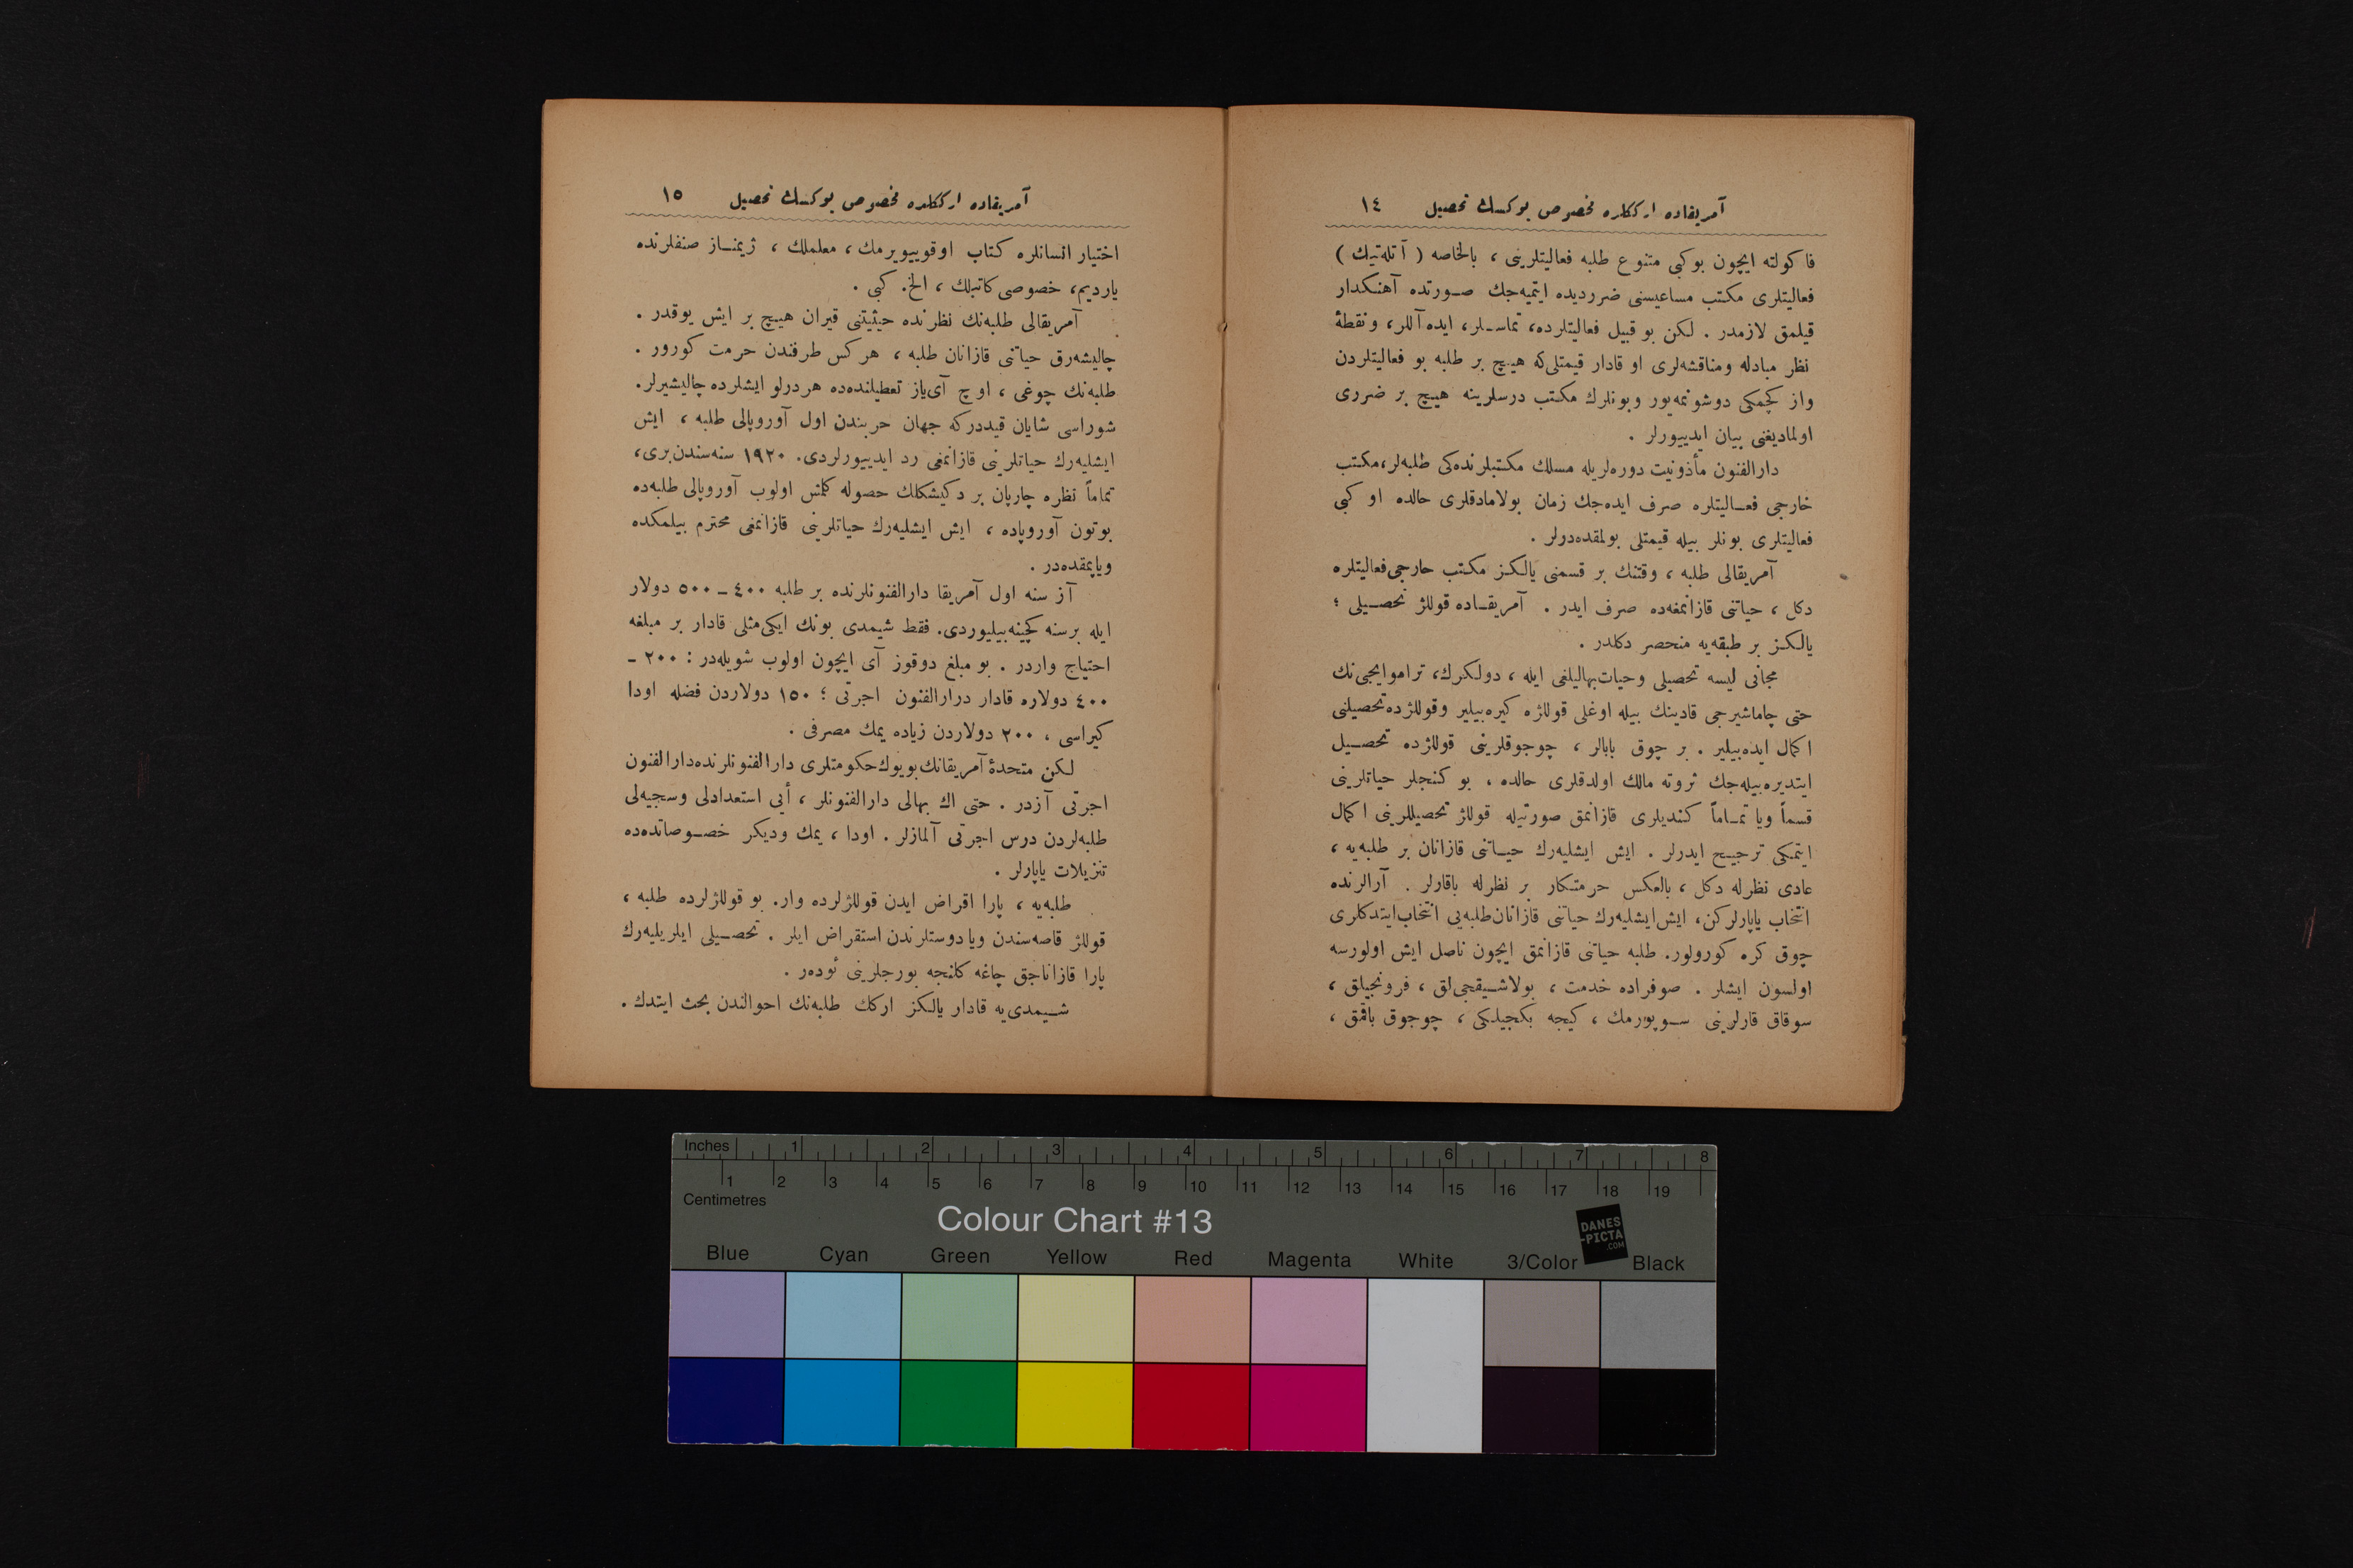 آمریقاده ارککلره مخصوص یوکسك تحصیل ١٤
فاكولته ایچون بوکبی متنوع طلبه فعالیتلرینی ، بالخاصه ( آتله‌تیك )
فعالیتلری مکتب مساعیسنی ضرردیده ایتمیه‌جك صورتده آهنکدار
قیلمق لازمدر . لکن بو قبیل فعالیتلرده، تماسلر، ایده‌آللر، و نقطهٔ
نظر مبادله ومناقشه‌لری او قادار قیمتلی‌که هیچ بر طلبه بو فعالیتلردن
واز کچمکی دوشونمه‌یور وبونلرك مکتب درسلرینه هیچ بر ضرری
اولمادیغنی بیان ایدییورلر .
دارالفنون مأذونیت دوره‌لریله مسلك مکتبلرنده‌کی طلبه‌لر، مکتب
خارجی فعالیتلره صرف ایده‌جك زمان بولامادقلری حالده او کبی
فعالیتلری بونلر بیله قیمتلی بولمقده‌درلر .
آمریقالی طلبه ، وقتنك بر قسمنی یالکز مکتب خارجی فعالیتلره
دکل ، حیاتنی قازانمغه‌ده صرف ایدر . آمریقاده قوللژ تحصیلی ؛
یالکز بر طبقه‌یه منحصر دکلدر .
مجانی لیسه تحصیلی وحیات بهالیلغی ایله ، دولکرك، تراموایجی‌نك
حتی چاماشیرجی قادینك بیله اوغلی قوللژه کیره‌بیلیر وقوللژده تحصیلنی
اکمال ایده‌بیلیر . بر چوق بابالر ، چوجوقلرینی قوللژده تحصیل
ایتدیره‌بیله‌جك ثروته مالك اولدقلری حالده ، بو کنجلر حیاتلرینی
قسماً ویا تماماً کندیلری قازانمق صورتیله قوللژ تحصیللرینی اکمال
ایتمکی ترجیح ایدرلر . ایش ایشلیه‌رك حیاتنی قازانان بر طلبه‌یه ،
عادی نظرله دکل ، بالعکس حرمتکار بر نظرله باقارلر . آرالرنده
انتخاب یاپارلرکن، ایش ایشلیه‌رك حیاتنی قازانان طلبه‌یی انتخاب ایتدکلری
چوق کره کورولور. طلبه حیاتنی قازانمق ایچون ناصل ایش اولورسه
اولسون ایشلر . صوفراده خدمت ، بولاشیقجی‌لق ، فرونجیلق ،
سوقاق قارلرینی سوپورمك ، کیجه بکجیلکی ، چوجوق باقمق ،
آمریقاده ارککلره مخصوص یوکسك تحصیل ١٥
اختیار انسانلره کتاب اوقوییویرمك ، معلملك ، ژیمناز صنفلرنده
یاردیم، خصوصی کاتبلك ، الخ. کبی .
آمریقالی طلبه‌نك نظرنده حیثیتنی قیران هیچ بر ایش یوقدر .
چالیشه‌رق حیاتنی قازانان طلبه ، هرکس طرفندن حرمت کورور .
طلبه‌نك چوغی ، اوچ آی یاز تعطیلنده‌ده هردرلو ایشلرده چالیشیرلر.
شوراسی شایان قیددرکه جهان حربندن اول آوروپالی طلبه ، ایش
ایشلیه‌رك حیاتلرینی قازانمغی رد ایدییورلردی. ١٩٢٠ سنه‌سندن بری،
تماماً نظره چارپان بر دکیشکلك حصوله کلمش اولوب آوروپالی طلبه‌ده
بوتون آوروپاده ، ایش ایشلیه‌رك حیاتلرینی قازانمغی محترم بیلمکده
ویاپمقده‌در .
آز سنه اول آمریقا دارالفنونلرنده بر طلبه ٤٠٠ ــ ٥٠٠ دولار
ایله برسنه کچینه‌بیلیوردی. فقط شیمدی بونك ایکی مثلی قادار بر مبلغه
احتیاج واردر . بو مبلغ دوقوز آی ایچون اولوب شویله‌در : ٢٠٠ ــ
٤٠٠ دولاره قادار درارالفنون اجرتی ؛ ١٥٠ دولاردن فضله اودا
کیراسی ، ٢٠٠ دولاردن زیاده یمك مصرفی .
لکن متحدهٔ آمریقانك بویوك حکومتلری دارالفنونلرنده دارالفنون
اجرتی آزدر . حتی اك بهالی دارالفنونلر ، أیی استعدادلی وسجیه‌لی
طلبه‌لردن درس اجرتی آلمازلر . اودا ، یمك ودیکر خصوصاتده‌ده
تنزیلات یاپارلر .
طلبه‌یه ، پارا اقراض ایدن قوللژلرده وار. بو قوللژلرده طلبه ،
قوللژ قاصه‌سندن ویا دوستلرندن استقراض ایلر . تحصیلی ایلریلیه‌رك
پارا قازاناجق چاغه کلنجه بورجلرینی ئوده‌ر .
شیمدی‌یه قادار یالکز ارکك طلبه‌نك احوالندن بحث ایتدك .
Inches 1 2 3 4 5 6 7 8
1 2 3 4 5 6 7 8 9 10 11 12 13 14 15 16 17 18 19
Centimetres
Colour Chart #13
DANES
-PICTA
.COM
Blue Cyan Green Yellow Red Magenta White 3/Color Black